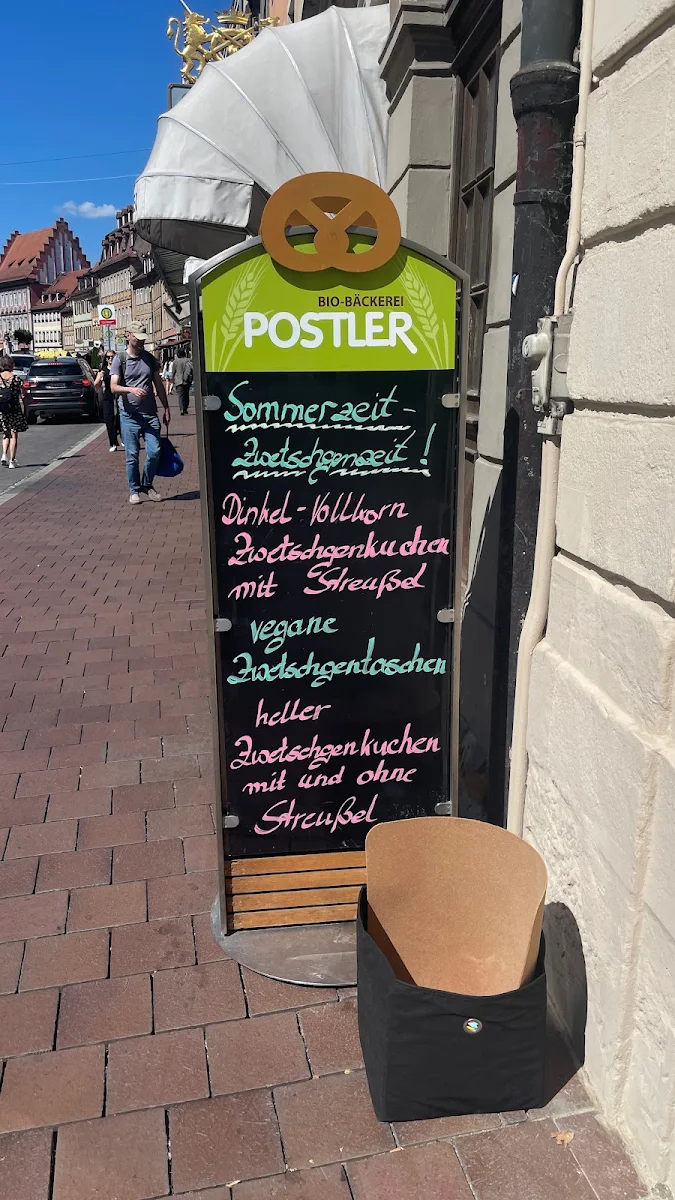 BIO-BÄCKEREI
POSTLER
Sommerzeit -
Zwetschgenzeit !
Dinkel-Vollkorn
Zwetschgenkuchen
mit Streußel
vegane
Zwetschgentaschen
heller
Zwetschgenkuchen
mit und ohne
Streußel